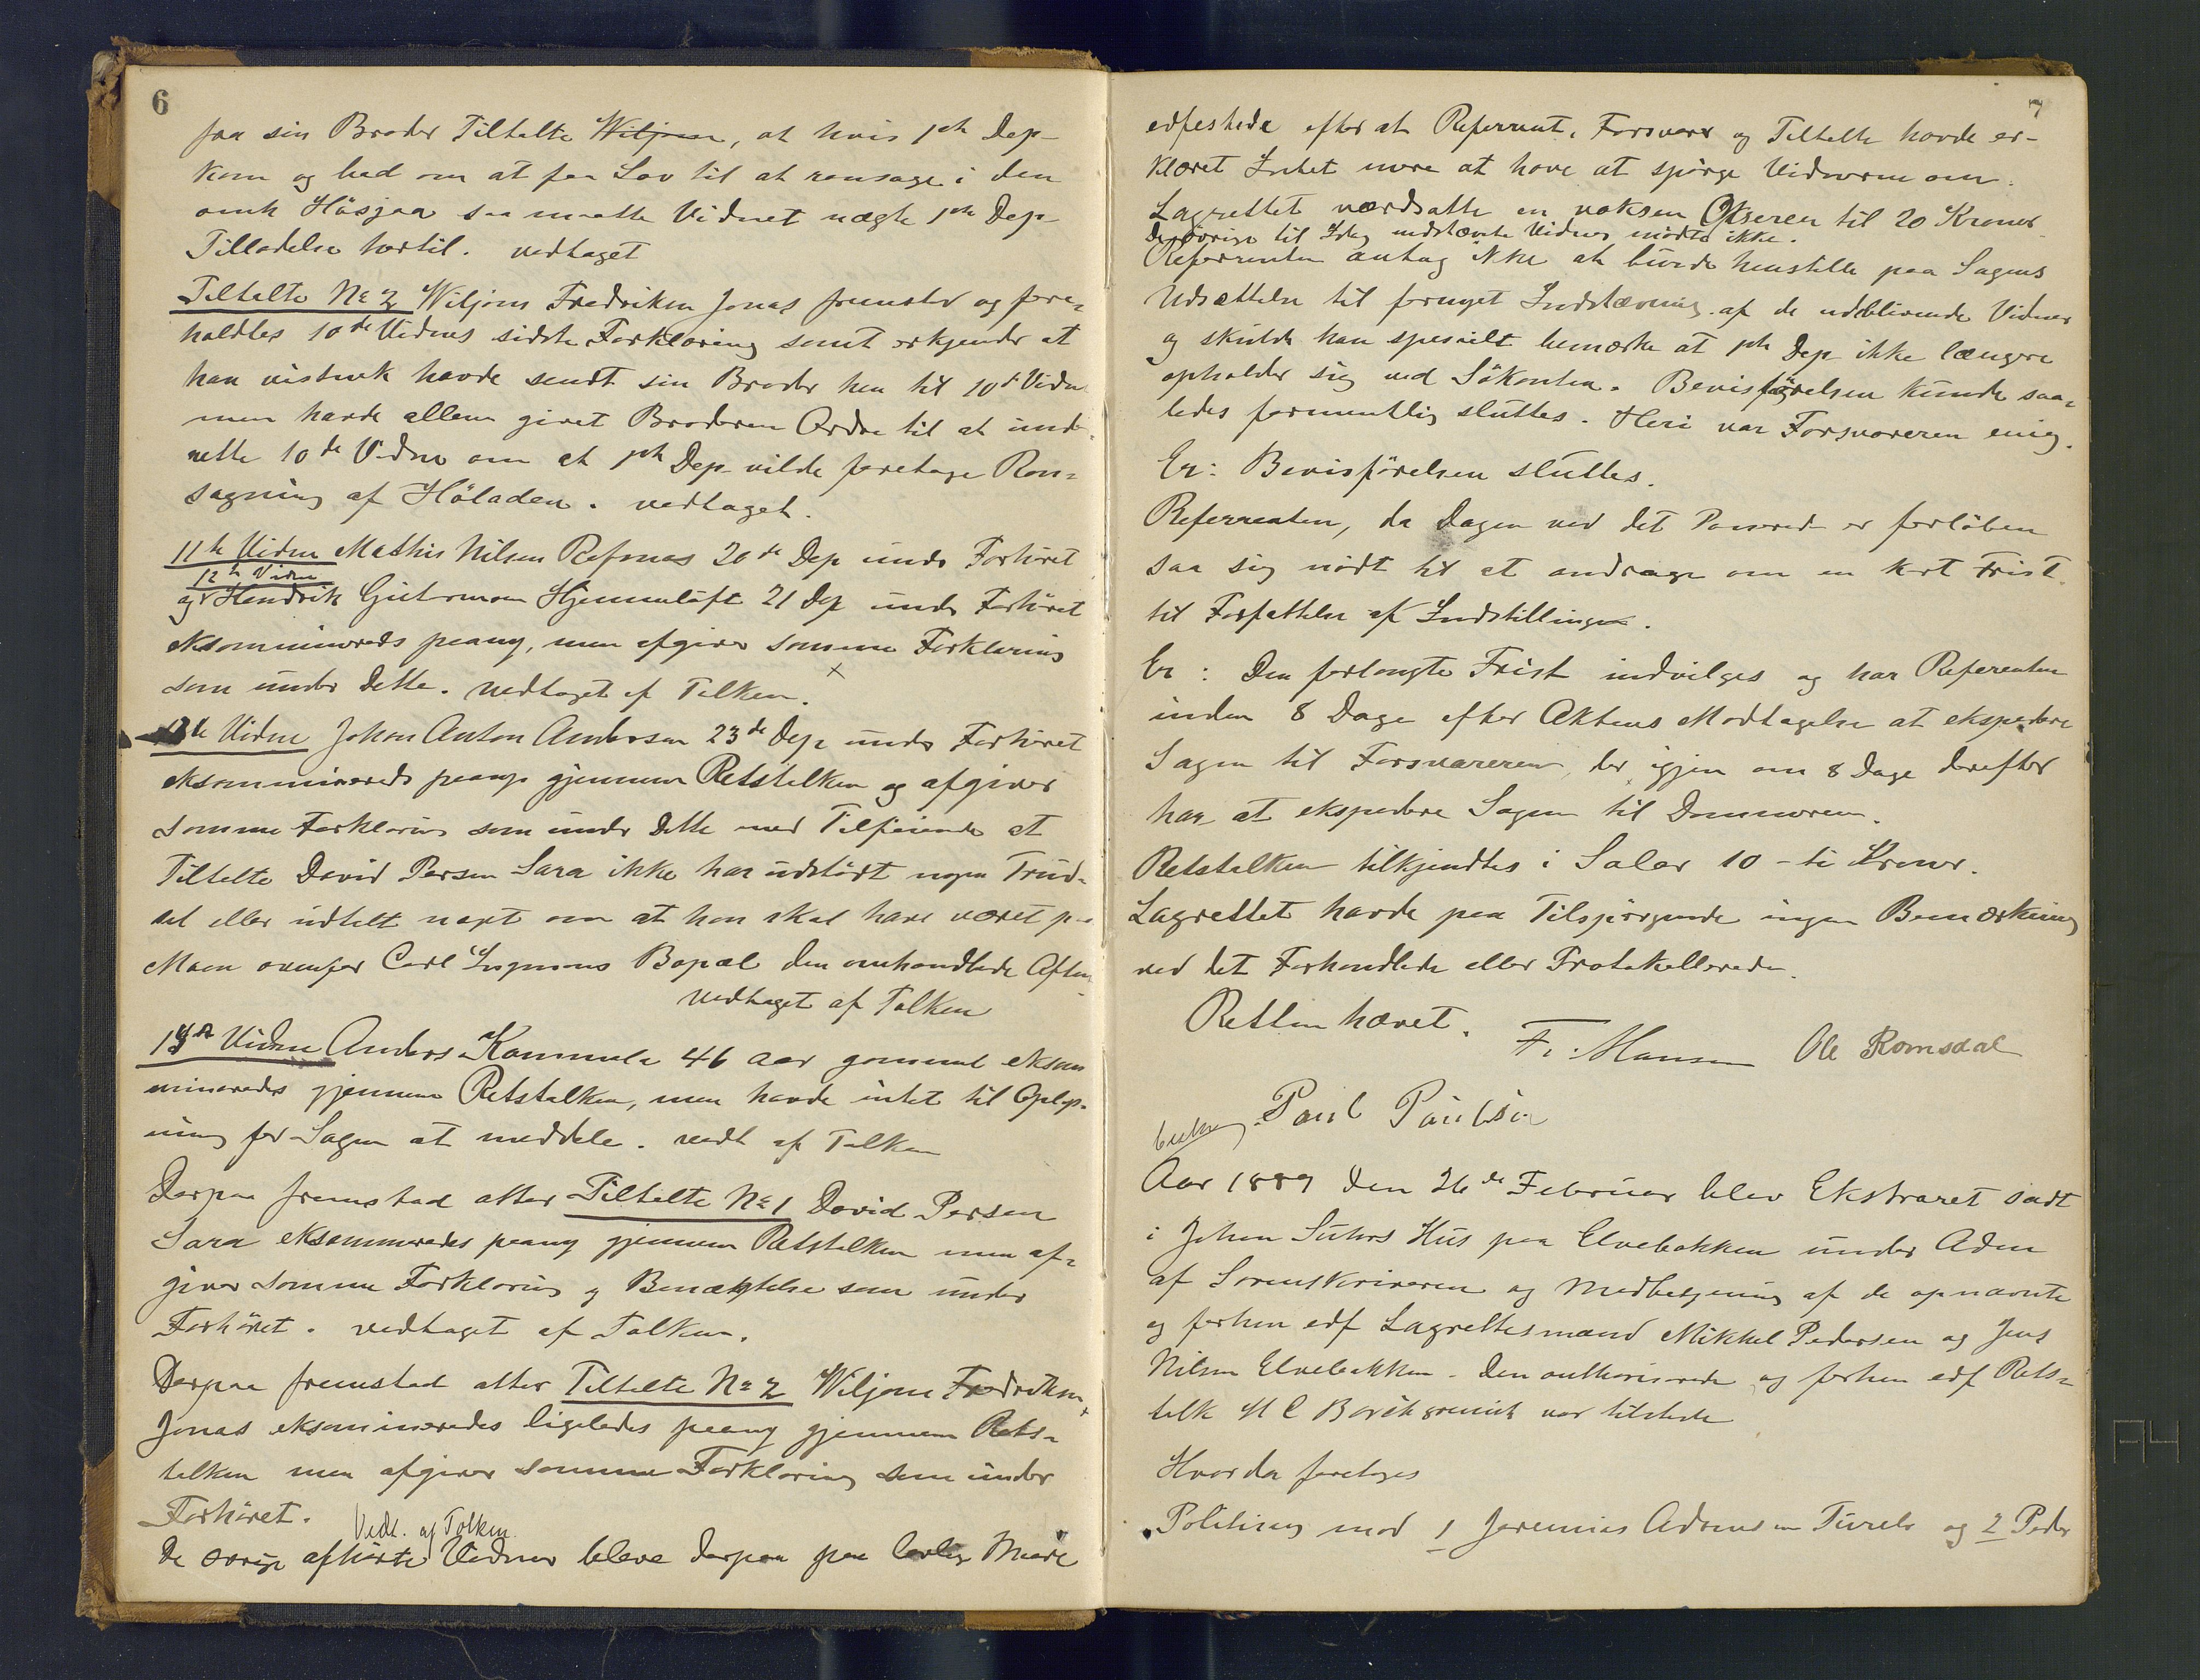 6
fra sin Broder Tiltalte Wiljom, at hvis 1ste Dep
kom og bad om at faa Lov til at ransage i den
omh Høsjaa saa maatte Vidnet nægte 1ste Dep
Tilladelse hertil. vedtaget
Tiltalte No 2 Wiljom Fredriksen Jonas fremstod og fore-
holdtes 10de Vidnes sidste Forklaring samt erkjender at
han vistnok havde sendt sin Broder hen til 10de Vidne
men havde allene givet Broderen Ordre til at under-
rette 10de Vidne om at 1ste Dep vilde foretage Ran-
sagning af Høladen. vedtaget.
11te Vidne Mathis Nilsen Refsnes 20de Dep under Forhøret
12te Vidne
og Hendrik Guttormsen Hjemmeluft 21 Dep under Forhøret
eksamineredes paany, men afgiver samme Forklaring
som under dette. vedtaget af Tolken.
13de Vidne Johan Anton Andersen 23de Dep under Forhøret
eksamineredes paany gjennem Retstolken og afgiver
samme Forklaring som under dette med Tilføiende at
Tiltalte David Persen Sara ikke har udstødt nogen Trud-
sel eller udtalt noget om at han skal have været paa
Moen ovenfor Carl Ingmons Bopæl den omhandlede Aften
vedtaget af Tolken
14de Vidne Anders Kommula 46 Aar gammel eksam
mineredes gjennem Retstolken, men havde intet til Oplys-
ning for Sagen at meddele. vedt af Tolken
Derpaa fremstod atter Tiltalte No 1 David Persen
Sara eksamineredes paany gjennem Retstolken men af-
giver samme Forklaring og Benægtelse som under
Forhøret. vedtaget af Tolken.
Derpaa fremstod atter Tiltalte No 2 Wiljom Fredriksen
Jonas eksamineredes ligeledes paany gjennem Rets-
tolken men afgiver samme Forklaring som under
Forhøret. Vedt. af Tolken.
De øvrige afhørte Vidner bleve derpaa paa lovlig Maade
7
edfestede efter at Referent, Forsvarer og Tiltalte havde er-
klæret Intet mere at have at spørge Vidnerne om.
Lagrettet værdsatte en voksen Okseren til 20 Kroner.
De øvrige til Idag indstævnte Vidner mødte ikke.
Referenten antog ikke at burde henstille paa Sagens
Udsættelse til fornyet Indstævning af de udeblivende Vidner
og skulde han specielt bemærke at 1ste Dep ikke længere
opholder sig ved Søkanten. Bevisførelsen kunde saa-
ledes formentlig sluttes. Heri var Forsvareren enig.
Er: Bevisførelsen sluttes.
Referenten, da Dagen ved det Passerede er forløben
saa sig nødt til at andrage om en kort Frist
til Forfattelse af Indstillingen.
Er: Den forlangte Frist indvilges og har Referenten
inden 8 Dage efter Aktens Modtagelse at ekspedere
Sagen til Forsvareren, der igjen om 8 Dage derefter
har at ekspedere Sagen til Dommeren.
Retstolken tilkjendtes i Salær 10 - ti Kroner.
Lagrettet havde paa Tilspørgende ingen Bemærkning
ved det Forhandlede eller Protokollerede.
Retten hævet.
Fr. Hansen Ole Romsdal
Paul Paulsen
Aar 1889 den 26de Februar blev Ekstraret sadt
i Johan Suhrs Hus paa Elvebakken under Adm
af Sorenskriveren og Medbetjening af de opnævnte
og forhen edf Lagrettesmænd Mikkel Pedersen og Jens
Nilsen Elvebakken. Den authoriserede og forhen edf Rets-
tolk H C Borchgrevink var tilstede
Hvorda foretoges
Politisag mod 1 Jeremias Adamsen Turelv og 2 Peder